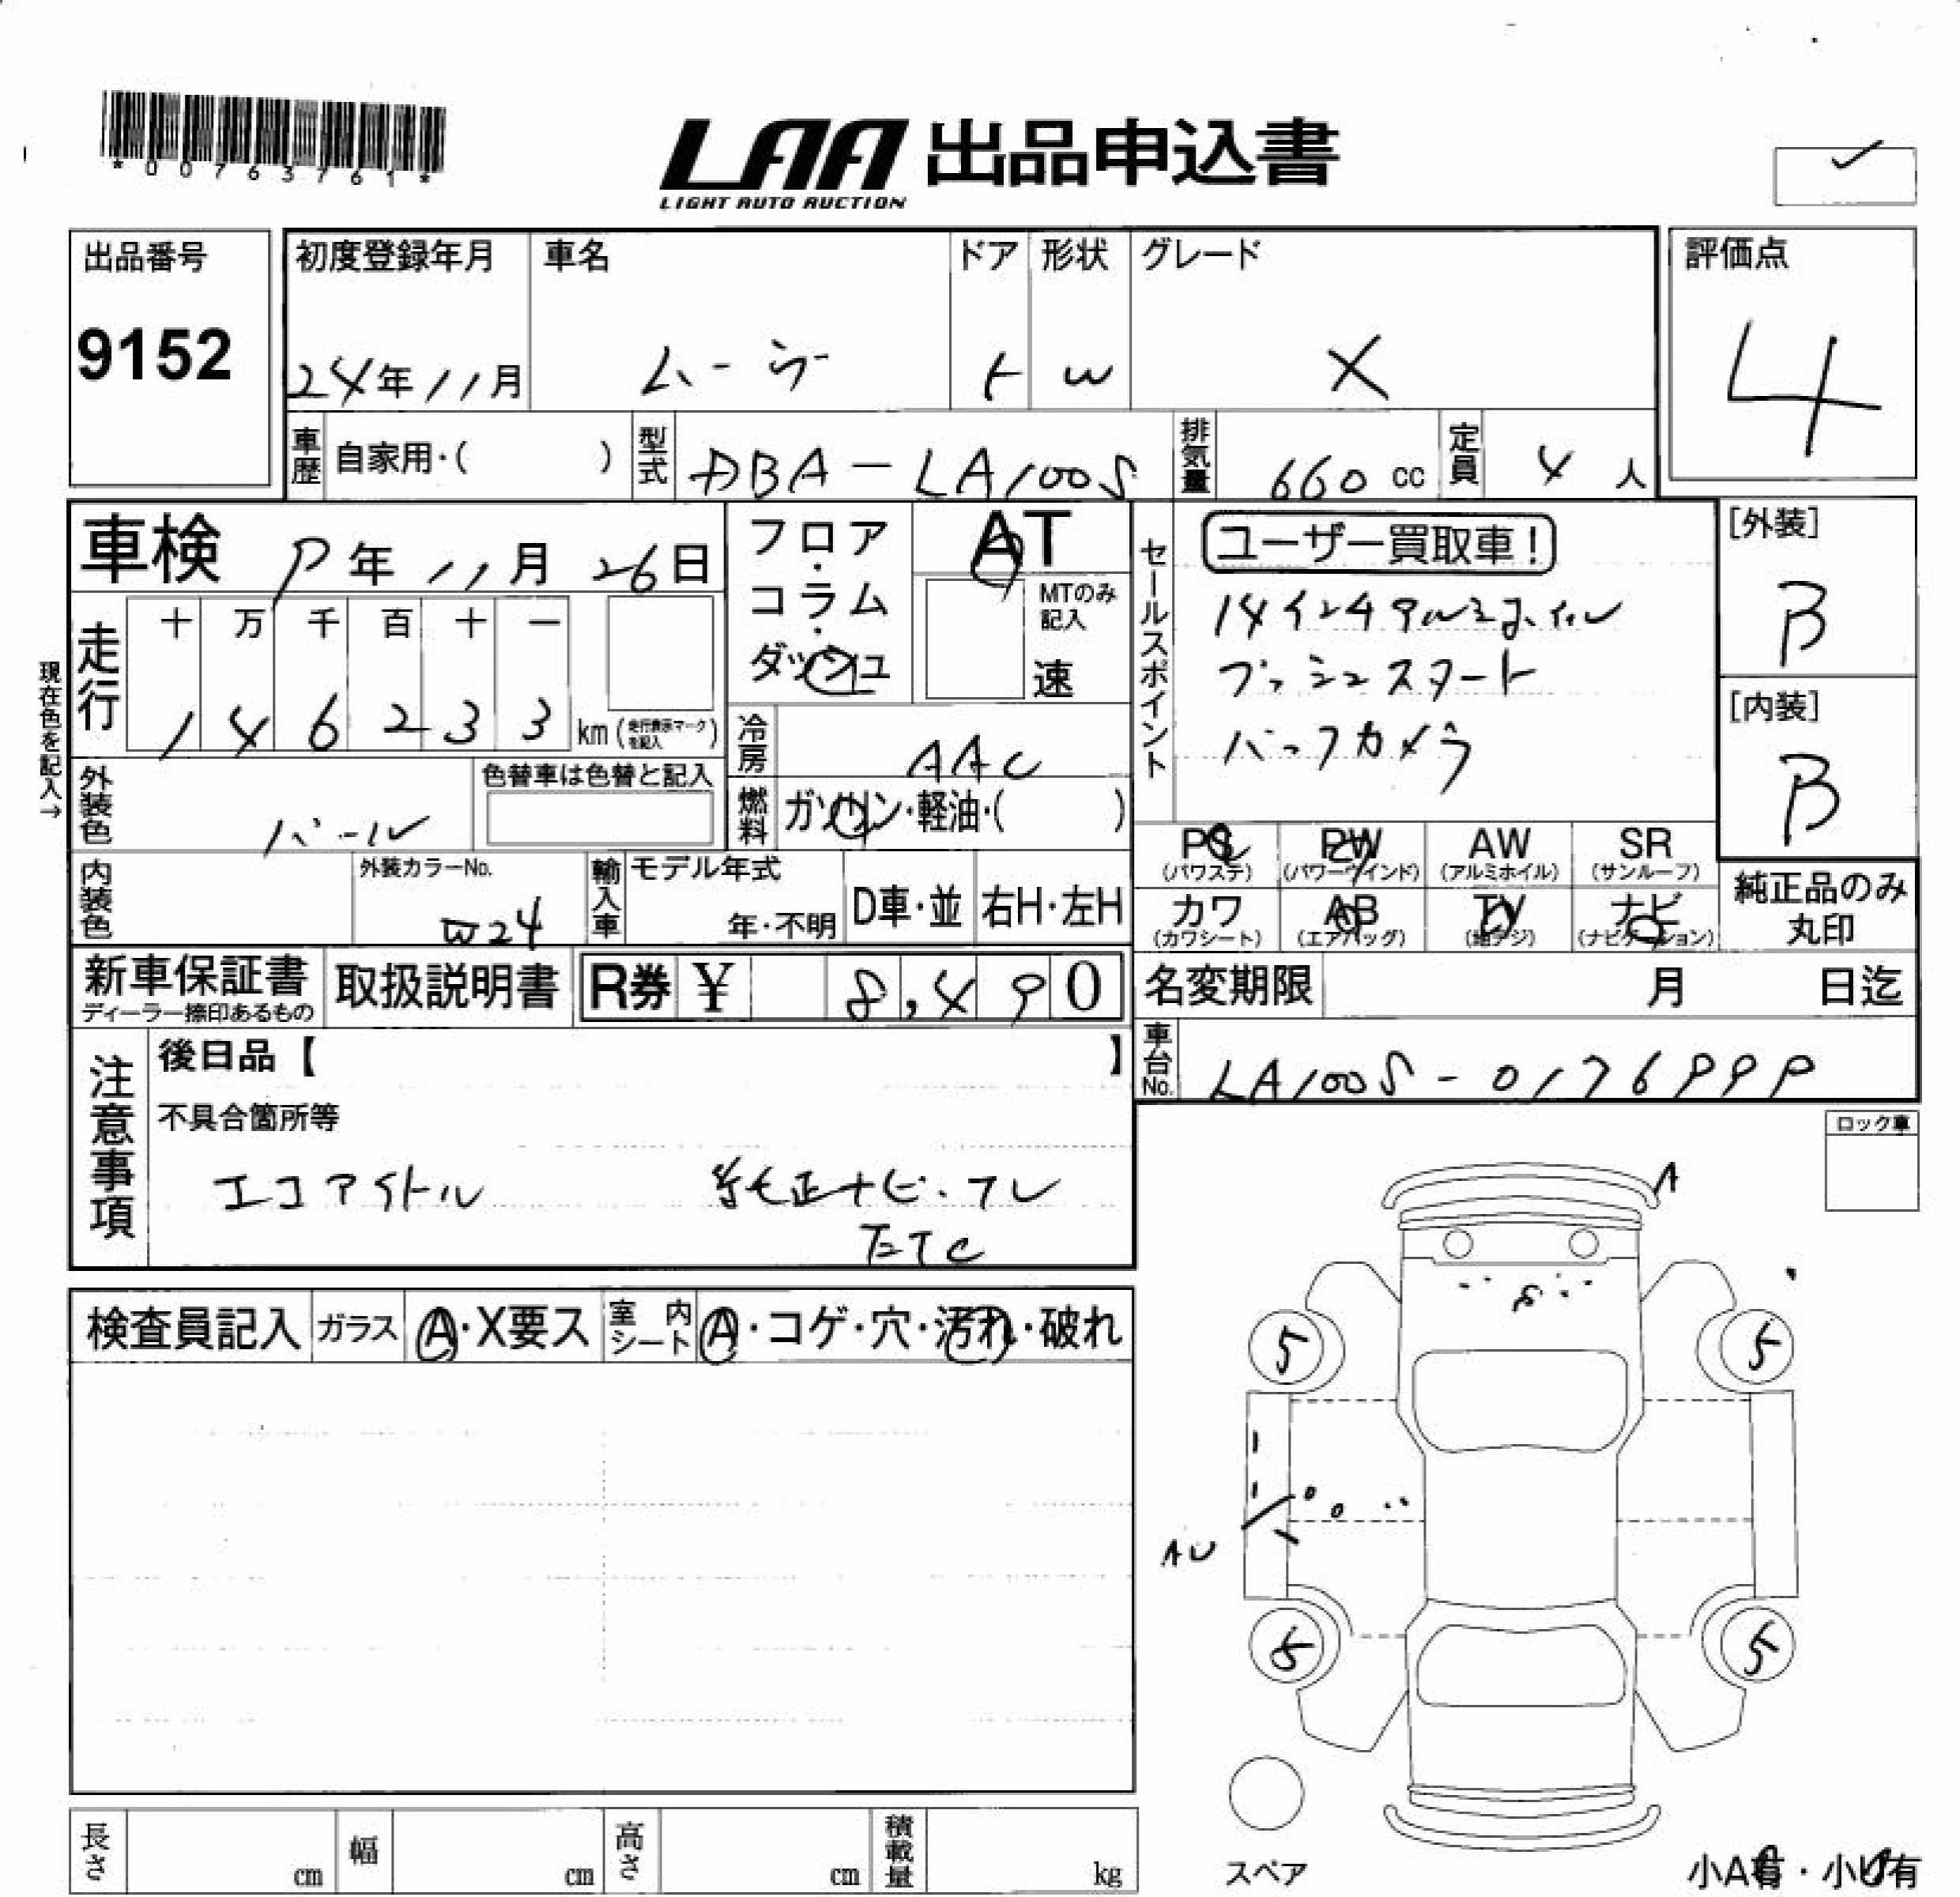 *00763761*
LAA 出品申込書
LIGHT AUTO AUCTION
出品番号
9152
初度登録年月
24年11月
車名
ムーヴ
ドア
5
形状
W
グレード
X
評価点
4
車歴
自家用・( )
型式
DBA-LA100S
排気量
660 cc
定員
4 人
車検 9年 11月 26日
フロア・コラム・ダッシュ
AT
MTのみ記入
速
セールスポイント
ユーザー買取車!
14インチアルミホイル
プッシュスタート
バックカメラ
[外装]
B
[内装]
B
現在色を記入→
走行
十 万 千 百 十 一
1 4 6 2 3 3 km (走行表示マークを記入)
冷房
AAC
外装色
パール
色替車は色替と記入
燃料
ガソリン・軽油・( )
PS (パワステ)
PW (パワーウインド)
AW (アルミホイル)
SR (サンルーフ)
カワ (カワシート)
AB (エアバッグ)
TV (地デジ)
ナビ (ナビゲーション)
純正品のみ丸印
内装色
外装カラーNo.
W24
輸入車
モデル年式
年・不明
D車・並
右H・左H
新車保証書
ディーラー捺印あるもの
取扱説明書
R券 ¥ 8,490
名変期限 月 日迄
車台No.
LA100S-0176999
注意事項
後日品【 】
不具合箇所等
エコアイドル 純正ナビ・テレ
ETC
ロック車
検査員記入
ガラス
A・X要ス
室内シート
A・コゲ・穴・汚れ・破れ
A
8
5
5
AU
5
5
スペア
小A有・小U有
長さ cm
幅 cm
高さ cm
積載量 kg